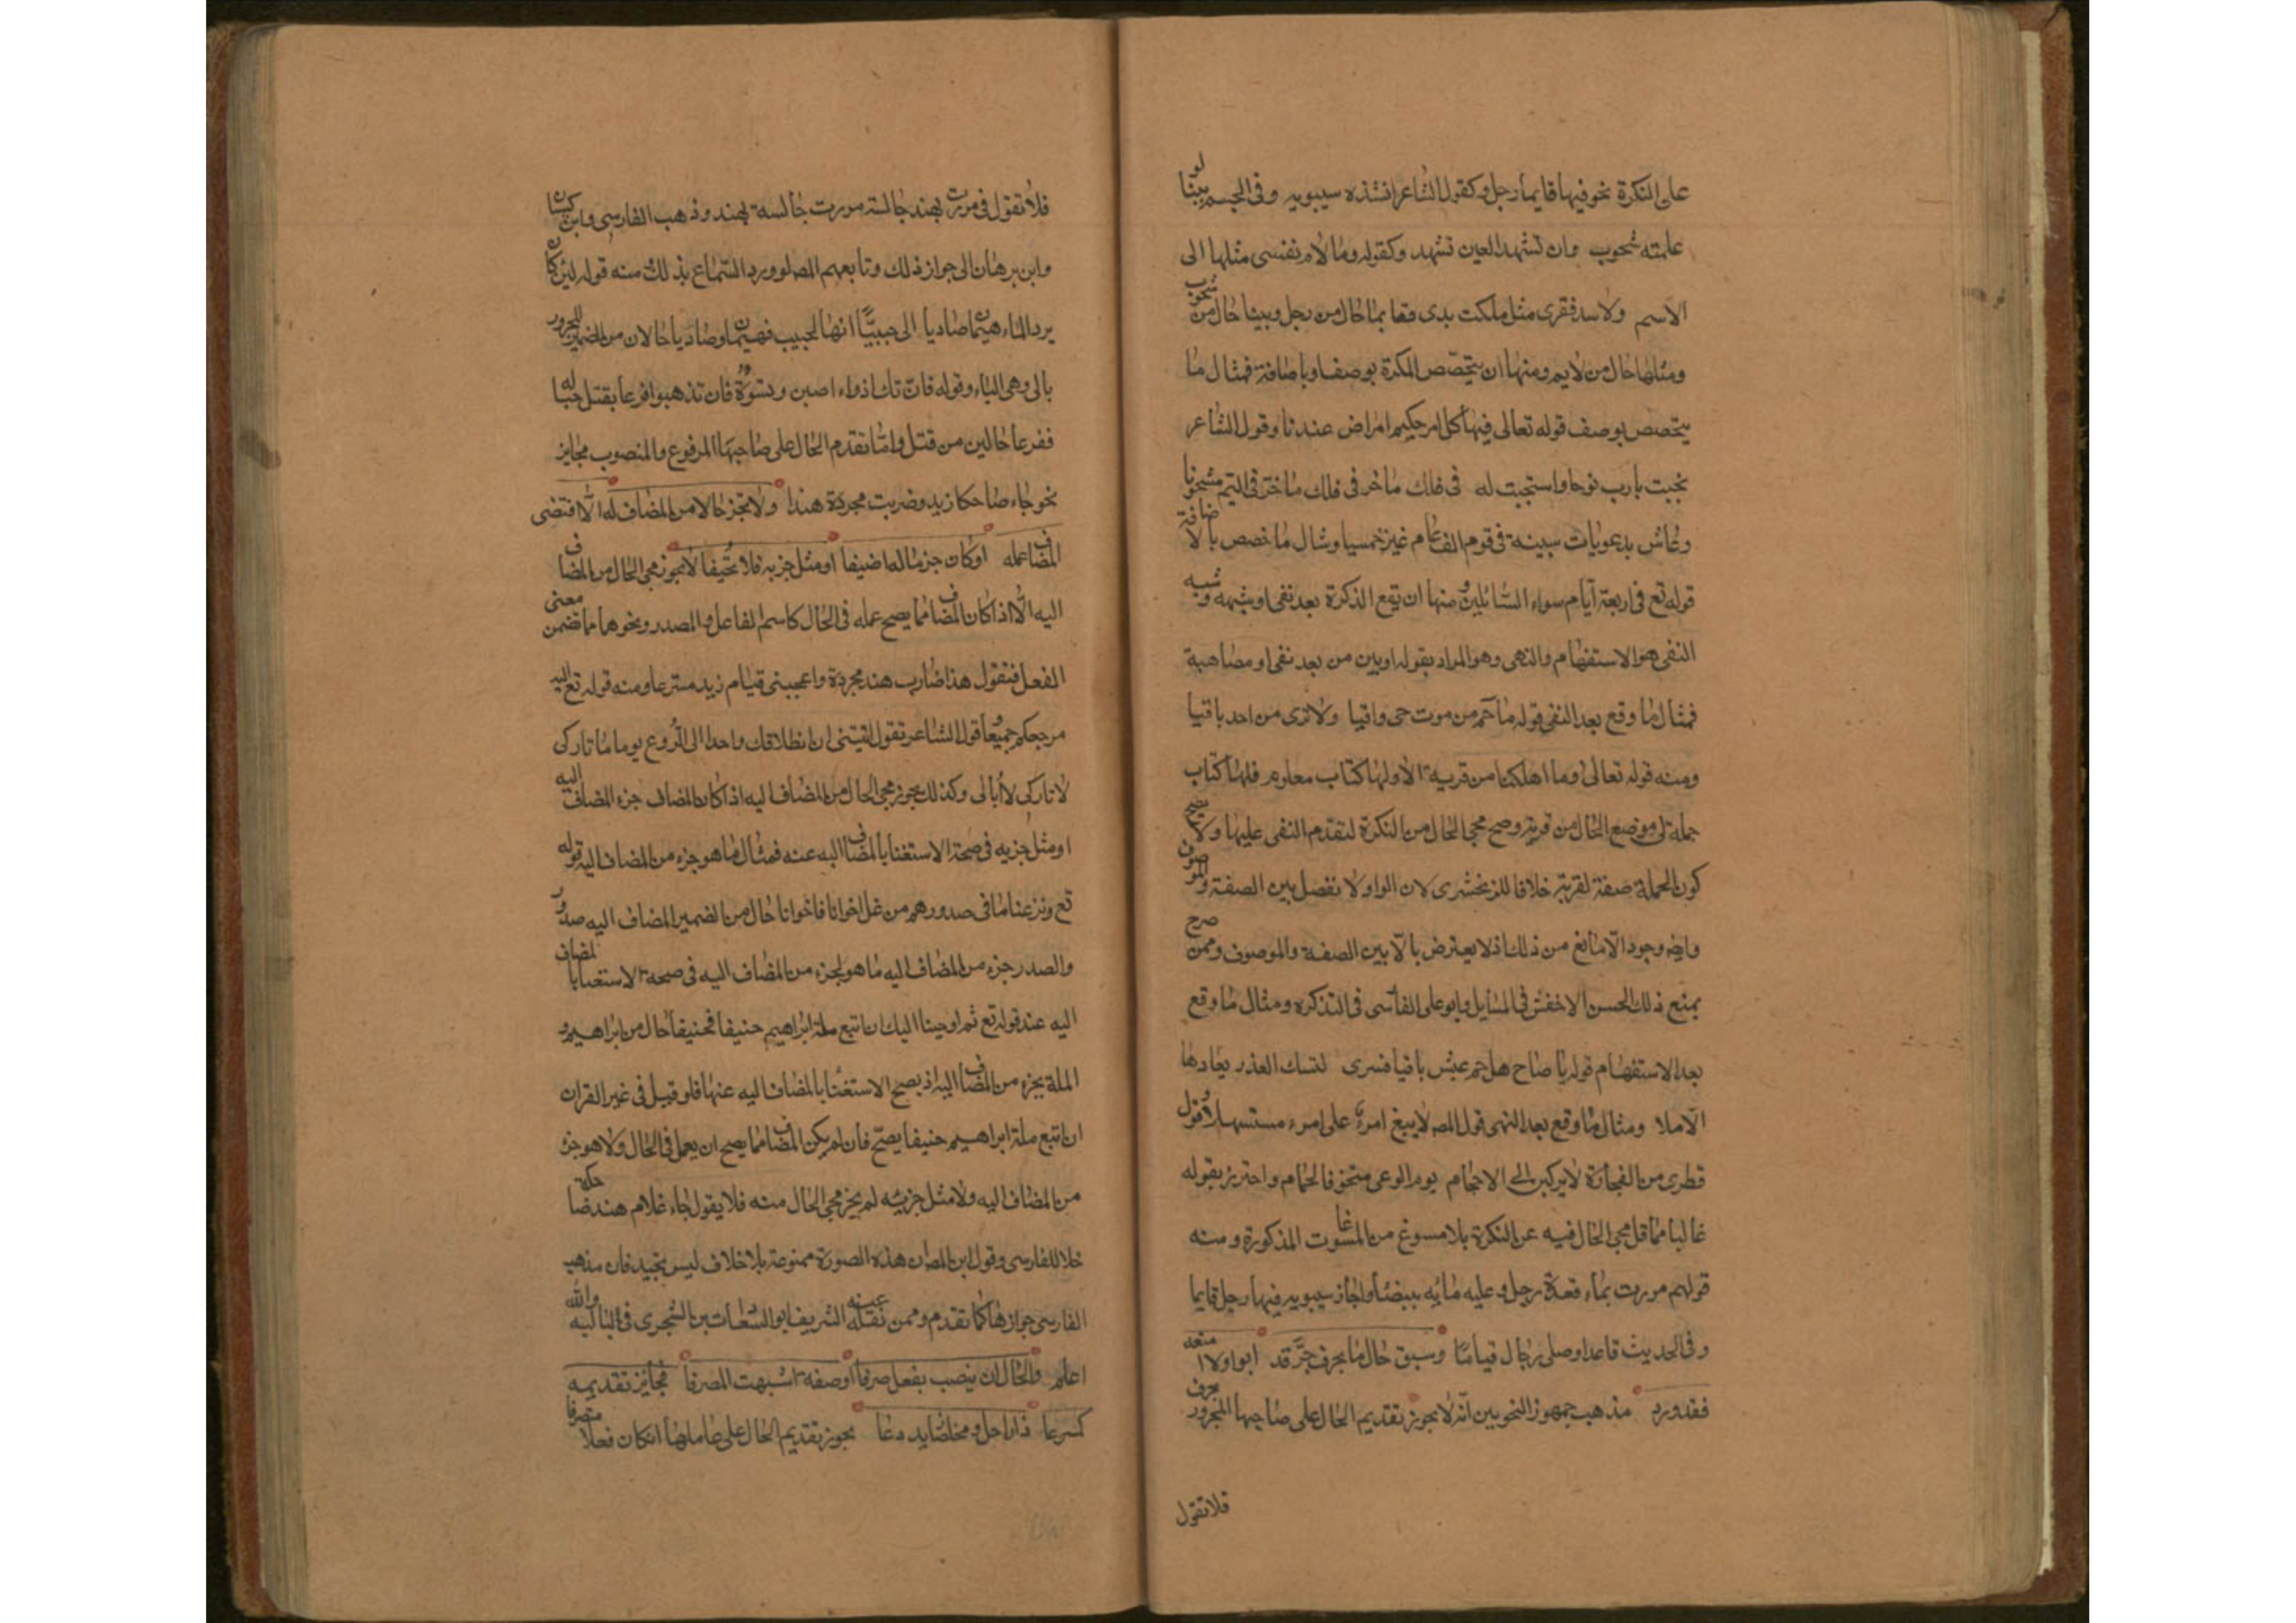 على النكرة نحو فيها قايما رجل وكقول الشاعر انشده سيبويه وفى الجسم بينا لو
علمته شحوب وان تشهد العين تشهد وكقوله وما لام نفسى مثلها الى
الاسم ولا سد فقرى مثل ملكت يدى فقايما حال من رجل وبينا حال من شحوب
ومثلها حال من لايم ومنها ان يتخصص النكرة بوصف او باضافة فمثال ما
يتخصص بوصف قوله تعالى فيها كل امر حكيم امرا من عندنا وقول الشاعر
نجيت يا رب نوحا واستجبت له فى فلك ماخر فى اليم مشحونا
وعاش يدعو بايات مبينة فى قومه الف عام غير خمسينا ومثال ما خصص بالاضافة
قوله تع فى اربعة ايام سواء للسائلين ومنها ان يقع النكرة بعد نفى او شبهه وشبه
النفى هو الاستفهام والنهى وهو المراد بقوله او يبن من بعد نفى او مضاهيه
فمثال ما وقع بعد النفى قوله ما حم من موت حمى واقيا ولا ترى من احد باقيا
ومنه قوله تعالى وما اهلكنا من قرية الا ولها كتاب معلوم فلها كتاب
جملة فى موضع الحال من قرية وصح مجى الحال من النكرة لتقدم النفى عليها ولا يصح
كون الجملة صفة لقرية خلافا للزمخشرى لان الواو لا تفصل بين الصفة والموصوف
وايضا وجود الا مانع من ذلك اذ لا يعترض بالا بين الصفة والموصوف وممن صرح
بمنع ذلك الحسن الاخفش فى المسايل وابو على الفاسى فى التذكره ومثال ما وقع
بعد الاستفهام قوله يا صاح هل حم عيش باقيا فترى لنفسك العذر فى ابعادها
الاملا ومثال ما وقع بعد النهى قول المص لا يبغ امرء على امرء مستسهلا وقول
قطرى من الفجاءة لا يركبن احد الى الاحجام يوم الوغى متخوفا لحمام واحترز بقوله
غالبا مما قل مجى الحال فيه عن النكرة بلا مسوغ من المسوغات المذكورة ومنه
قولهم مررت بماء قعدة رجل وعليه مايه بيضا واجاز سيبويه فيها رجل قايما
وفى الحديث قاعدا وصلى رجال قياما وسبق حال ما بحرف جر قد ابوا ولا امنعه
فقد ورد مذهب جمهور النحويين انه لا يجوز تقديم الحال على صاحبها المجرور بحرف
فلا تقول
فلا تقول فى مررت بهند جالسة مررت جالسة بهند وذهب الفارسى وابن كيسان
وابن برهان الى جواز ذلك وتابعهم المص لورود السماع بذلك ومنه قوله لئن كان
برد الماء هيمان صاديا الى حبيبا انها لحبيب فهيمان وصاديا حالان من الضمير المجرور
بالى وهى الياء وقوله فان تك اذواد اصبن ونسوة فان تذهبوا فرعا بقتل حبال
ففرعا حال من قتل واما تقدم الحال على صاحبها المرفوع والمنصوب فجايز
نحو جاء ضاحكا زيد وضربت مجردة هندا ولا تجز حالا من المضاف له الا اذا اقتضى
المضاف عمله او كان جزء ما له اضيفا او مثل جزئه فلا تحيفا لا يجوز مجى الحال من المضاف
اليه الا اذا كان المضاف مما يصح عمله فى الحال كاسم الفاعل والمصدر ونحوهما مما تضمن معنى
الفعل فتقول هذا ضارب هند مجردة واعجبنى قيام زيد مسرعا ومنه قوله تع اليه
مرجعكم جميعا وقول الشاعر تقول ابنتى ان انطلاقك واحدا الى الروع يوما ما تاركى
لا تاركى لا ابالى وكذلك يجوز مجى الحال من المضاف اليه اذا كان المضاف جزء المضاف اليه
او مثل جزيه فى صحة الاستغنا بالمضاف اليه عنه فمثال ما هو جزء من المضاف اليه قوله
تع ونزعنا ما فى صدورهم من غل اخوانا فاخوانا حال من الضمير المضاف اليه صدور
والصدر جزء من المضاف اليه ما هو لجزء من المضاف اليه فى صحة الاستغنا بالمضاف
اليه عند قوله تع ثم اوحينا اليك ان اتبع ملة ابراهيم حنيفا فحنيفا حال من ابراهيم و
الملة بجزء من المضاف اليه اذ يصح الاستغنا بالمضاف اليه عنها فلو قيل فى غير القران
ان اتبع ملة ابراهيم حنيفا يصح فان لم يكن المضاف مما يصح ان يعمل فى الحال ولا هو جزء
من المضاف اليه ولا مثل جزئيه لم يجز مجى الحال منه فلا يقول جاء غلام هند ضاحكة
خلا للفارسى وقول ابن المص ان هذه الصورة ممنوعة بلا خلاف ليس بجيد فان مذهب
الفارسى جوازها كما تقدم وممن نقله عينه الشريف ابو السعادات بن الشجرى فى اماليه والله
اعلم والحال ان ينصب بفعل صرفا او صفة اشبهت المصرفا فجايز تقديمه
كمسرعا ذا راحل ومخلصا زيد دعا يجوز تقديم الحال على عاملها ان كان فعلا متصرفا